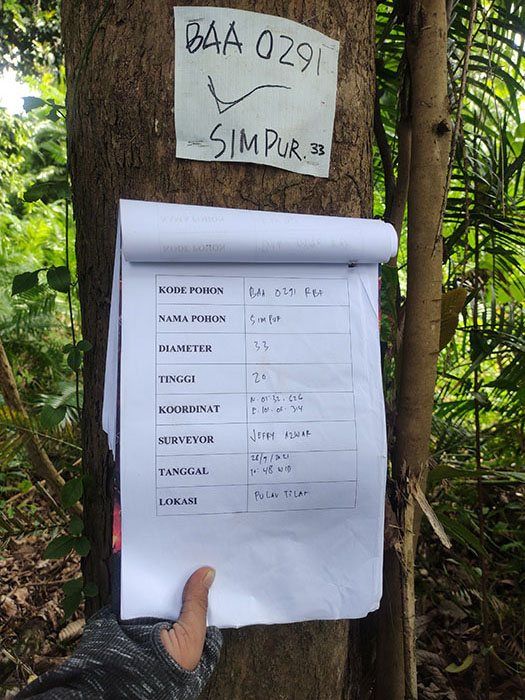 BAA 0291
SIMPUR. 33
KODE POHON BAA 0291 RBF
NAMA POHON SIMPUR
DIAMETER 33
TINGGI 20
KOORDINAT N. 01. 32. 626
E. 101. 06.
SURVEYOR JEFRY AZWAR
TANGGAL 28/9/2021
10:48 WIB
LOKASI PULAU TILAN